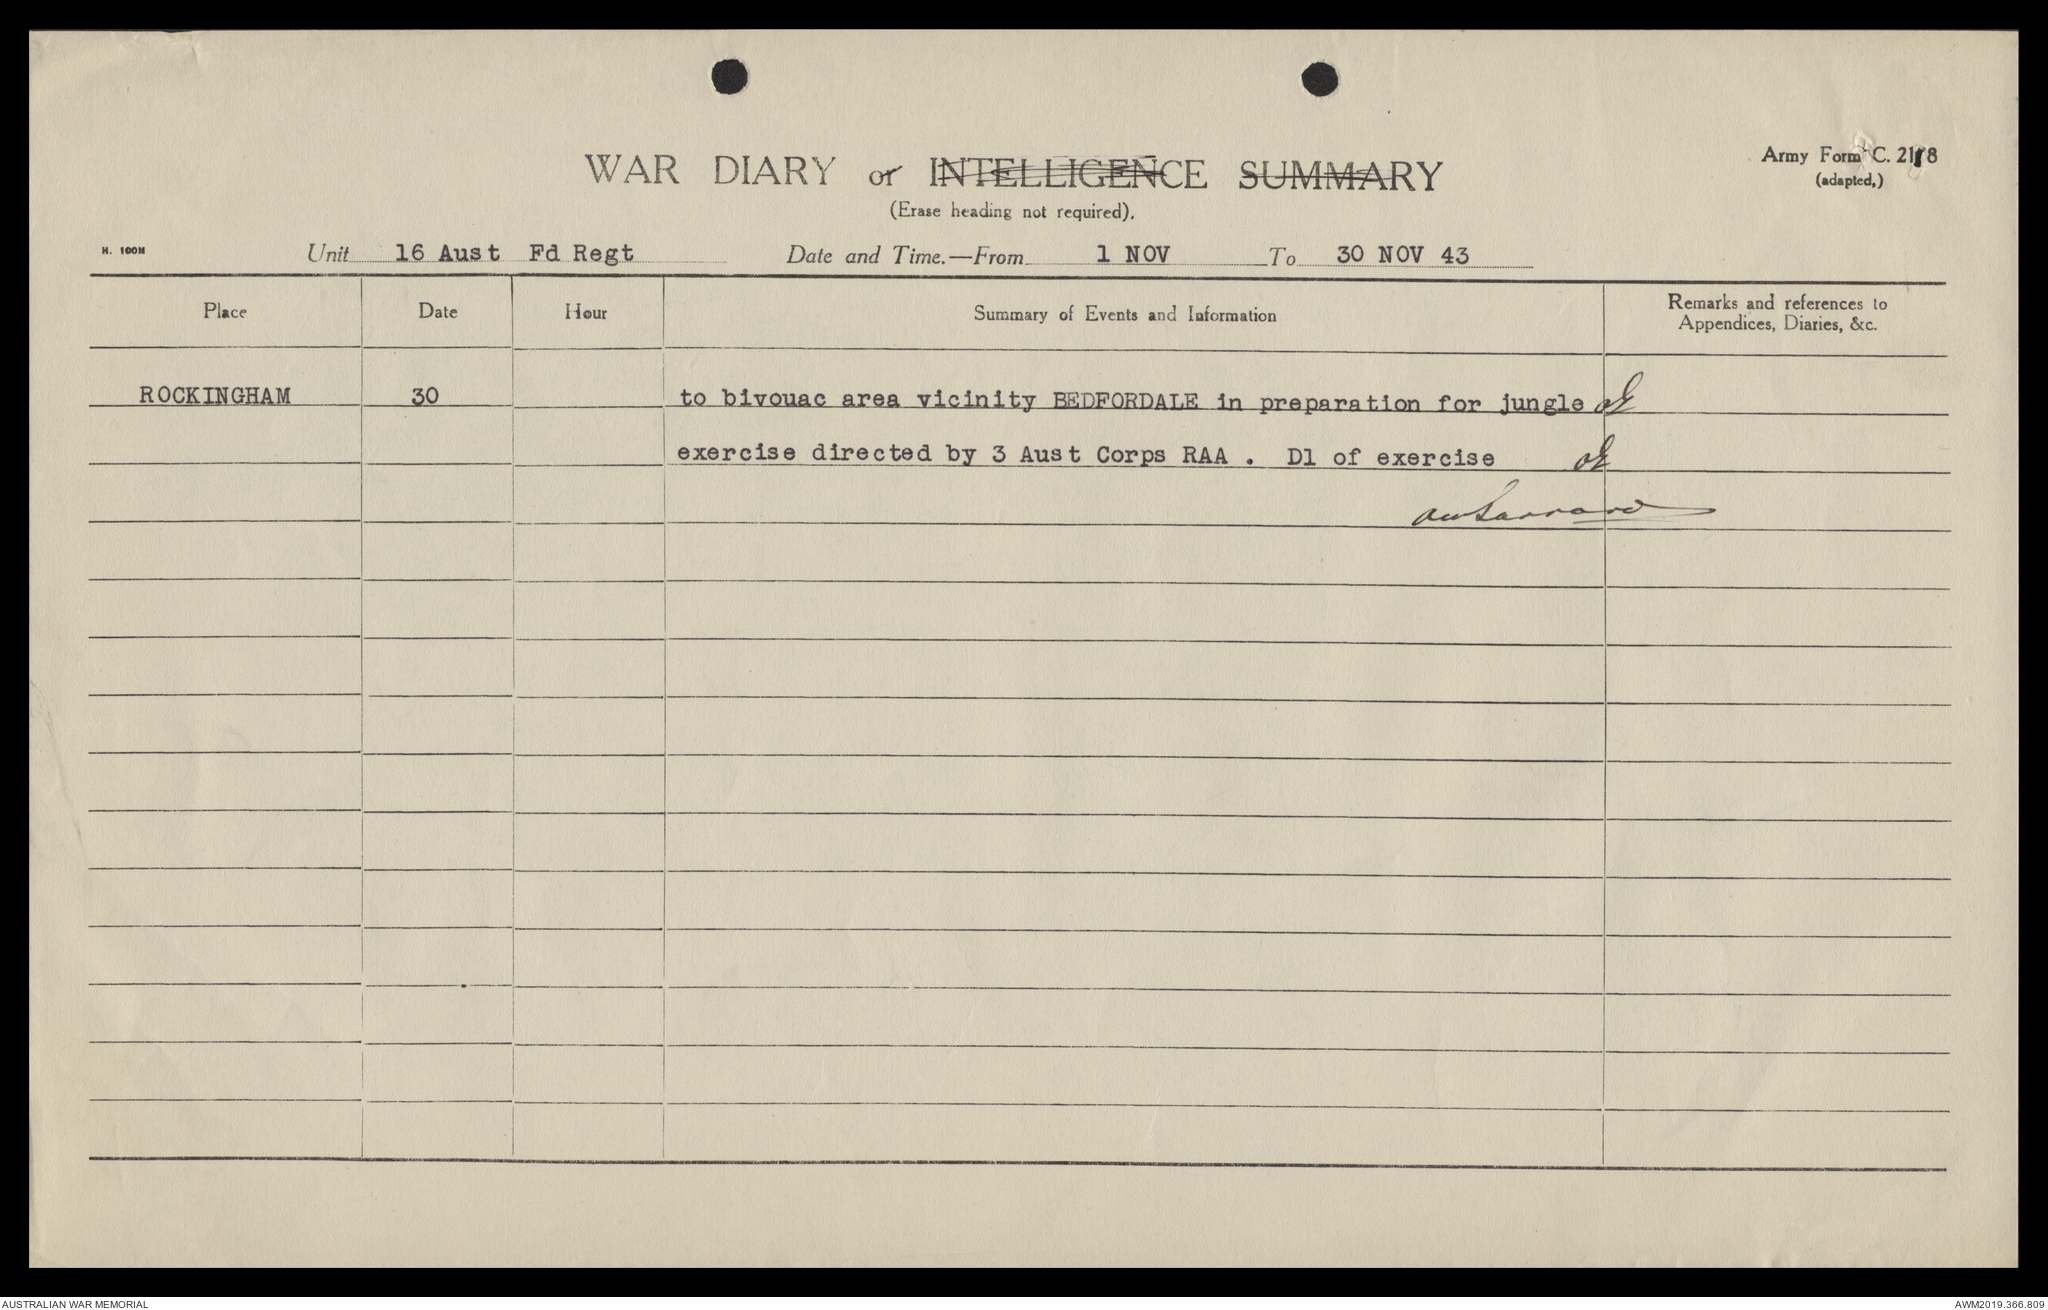 Army Form C. 2118
(adapted.)
WAR DIARY or INTELLIGENCE SUMMARY
(Erase heading not required).
H. 100M Unit 16 Aust Fd Regt Date and Time.—From 1 NOV To 30 NOV 43
Place Date Hour Summary of Events and Information Remarks and references to
Appendices, Diaries, &c.
ROCKINGHAM 30 to bivouac area vicinity BEDFORDALE in preparation for jungle
exercise directed by 3 Aust Corps RAA . D1 of exercise
AUSTRALIAN WAR MEMORIAL
AWM2019.366.809